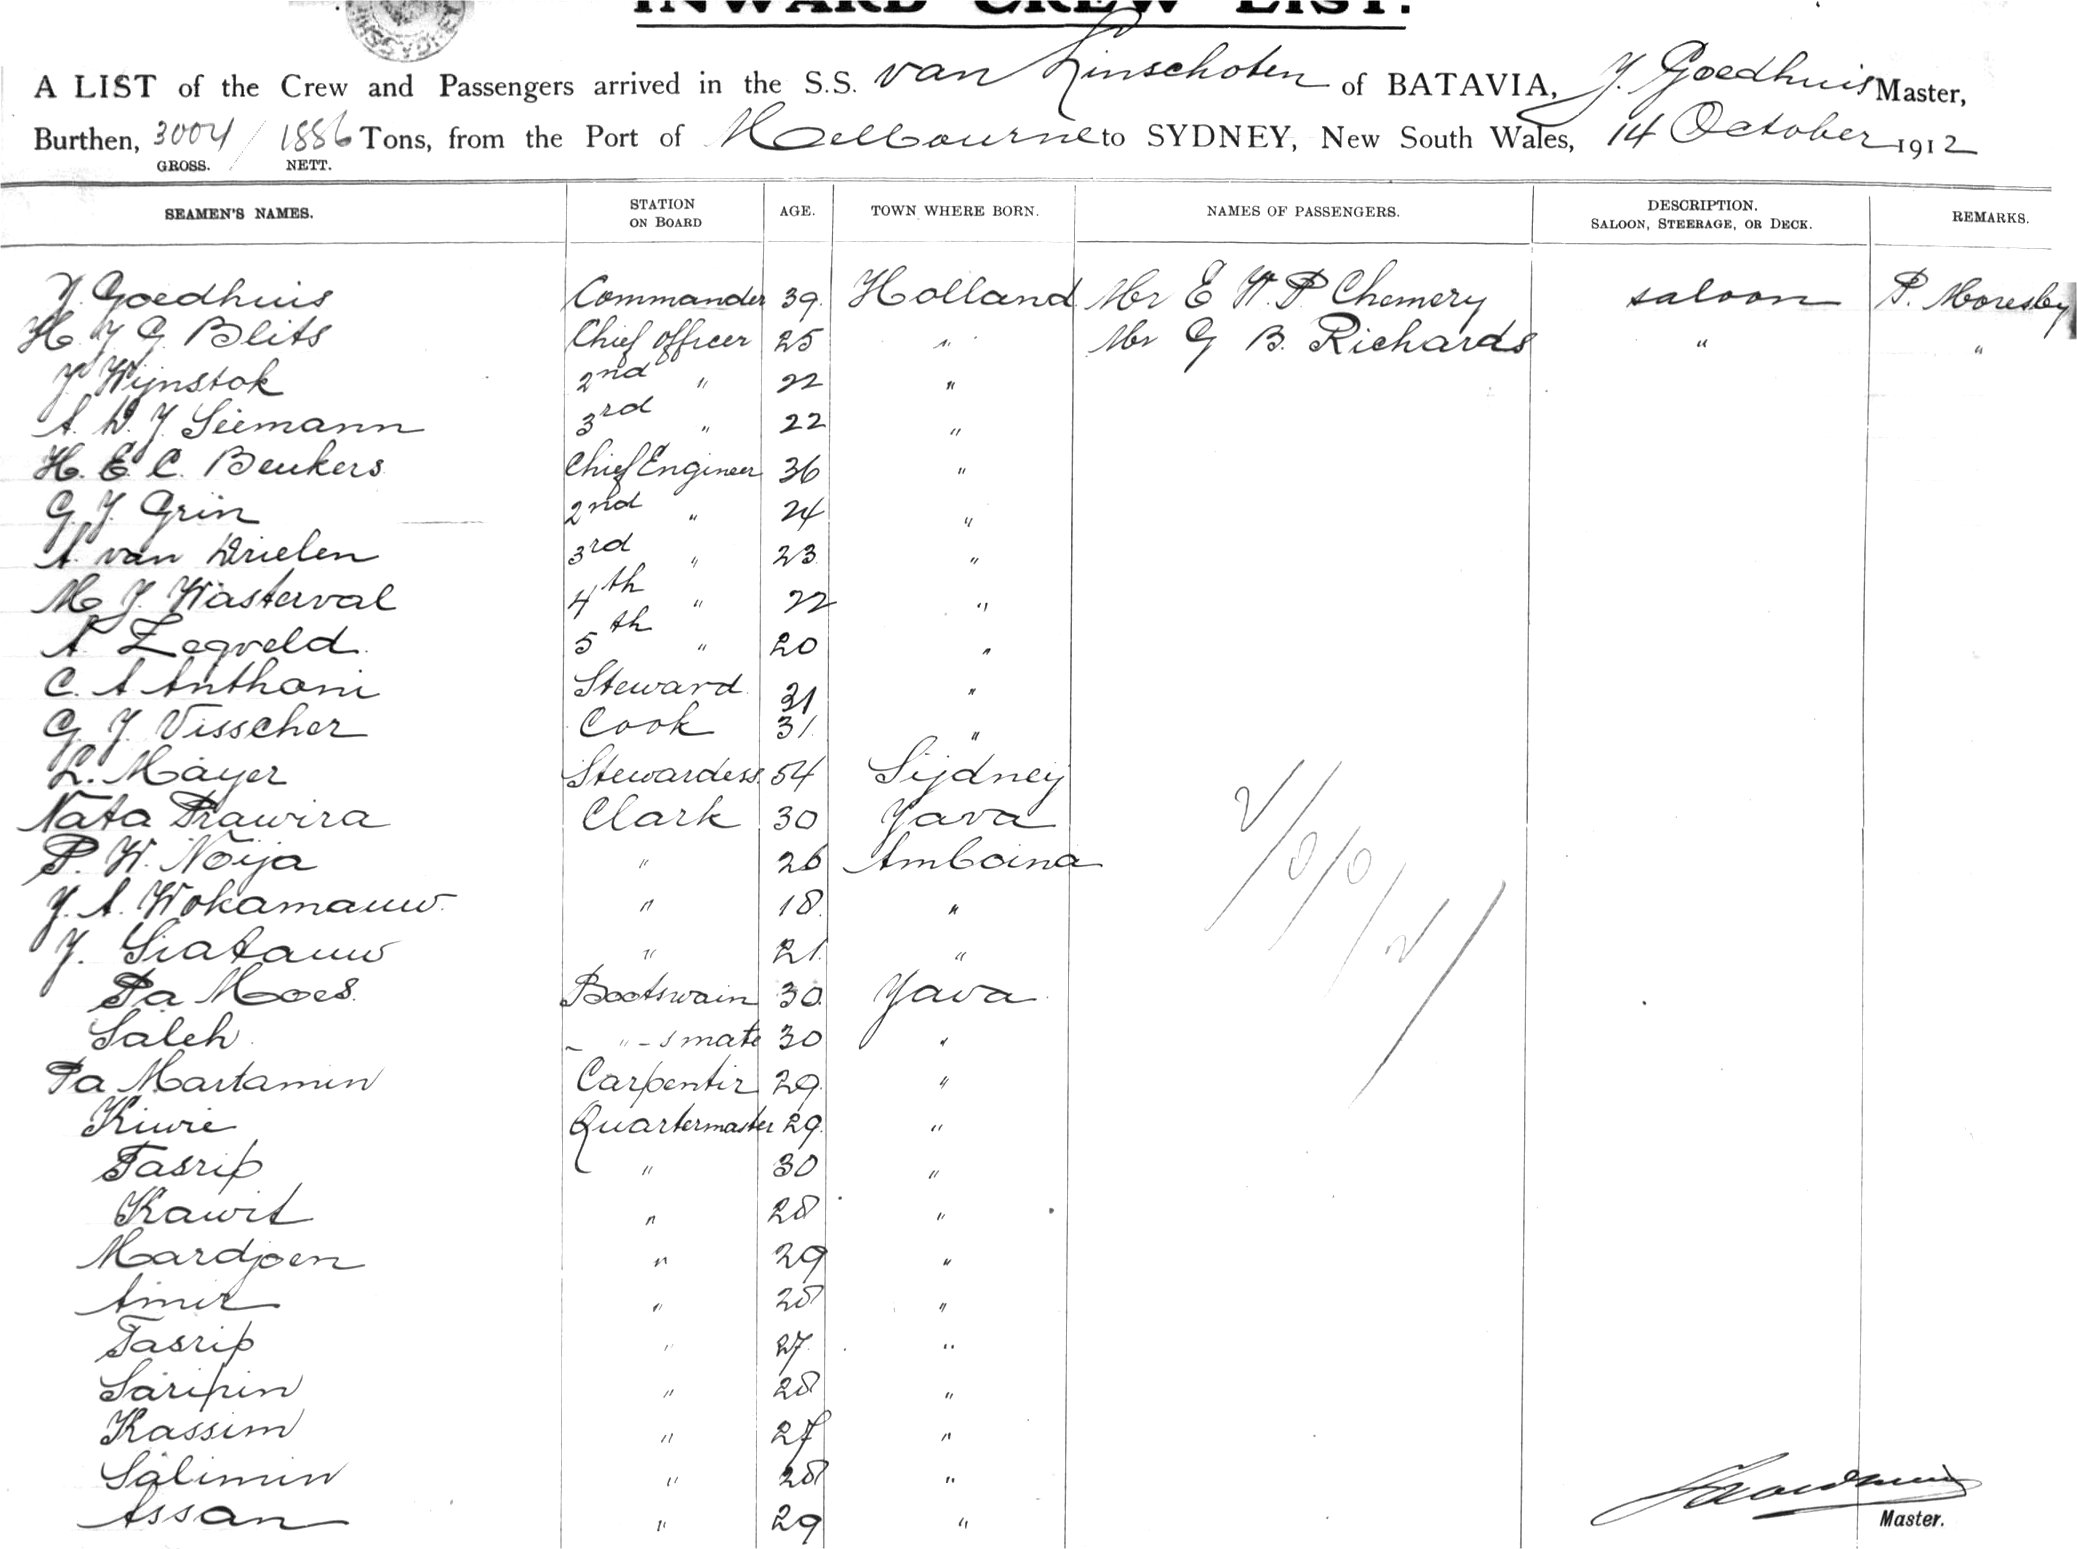 INWARD CREW LIST.
A LIST of the Crew and Passengers arrived in the S.S. van Linschoten of BATAVIA, J. Goedhuis Master,
Burthen, 3004 / 1886 Tons, from the Port of Melbourne to SYDNEY, New South Wales, 14 October 1912
GROSS. NETT.
SEAMEN'S NAMES. STATION ON BOARD AGE. TOWN WHERE BORN. NAMES OF PASSENGERS. DESCRIPTION. SALOON, STEERAGE, OR DECK. REMARKS.
J. Goedhuis Commander 39. Holland Mr E W. P Chemery saloon P. Moresby
H. J G. Blits Chief officer 25 " Mr G B. Richards " "
J. Wijnstok 2nd " 22 "
A. D. J. Siemann 3rd " 22 "
H. E. C. Beukers Chief Engineer 36 "
G. J. Grin 2nd " 24 "
A. van Drielen 3rd " 23 "
M J. Wasterval 4th " 22 "
A. Zegveld 5th " 20 "
C. A Anthoni Steward 31 "
G. J. Visscher Cook 31. "
L. Mayer Stewardess 54 Sijdney
Nata Prawira Clark 30 Java
P. W. Noija " 26 Amboina
J. A. Wokamauw " 18. "
J. Siatauw " 21. "
Pa Moes. Bootswain 30. Java
Saleh " - s mate 30 "
Pa Martamin Carpentir 29. "
Kiwie Quartermaster 29. "
Tasrip " 30 "
Kawit " 28 "
Mardjoen " 29 "
Amir " 28 "
Tasrip " 27. "
Saripin " 28 "
Kassim " 27 "
Salimin " 28 "
Assan " 29 "
Master.